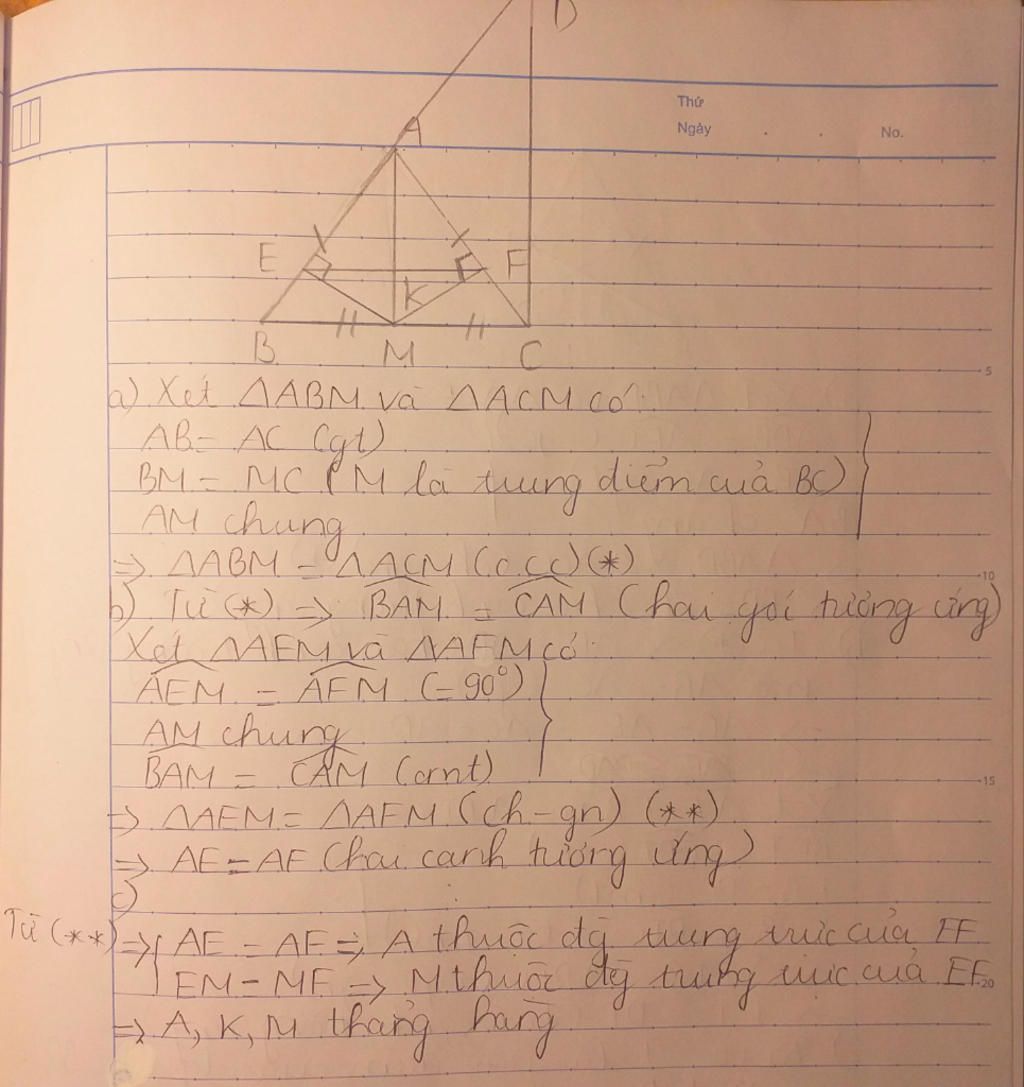 D
Thứ
Ngày . . No.
A
E
F
K
B M C
5
a) Xét ΔABM và ΔACM có:
AB = AC (gt)
BM = MC (M là trung điểm của BC)
AM chung
=> ΔABM = ΔACM (c.c.c) (*)
10
b) Từ (*) => BAM = CAM (hai goí tương ứng)
Xét ΔAEM và ΔAFM có:
AEM = AFM (= 90°)
AM chung
BAM = CAM (cmt)
15
=> ΔAEM = ΔAFM (ch-gn) (**)
=> AE = AF (hai cạnh tương ứng)
c)
Từ (**) => AE = AF => A thuộc đg trung trực của EF
EM = MF => M thuộc đg trung trực của EF
20
=> A, K, M thẳng hàng